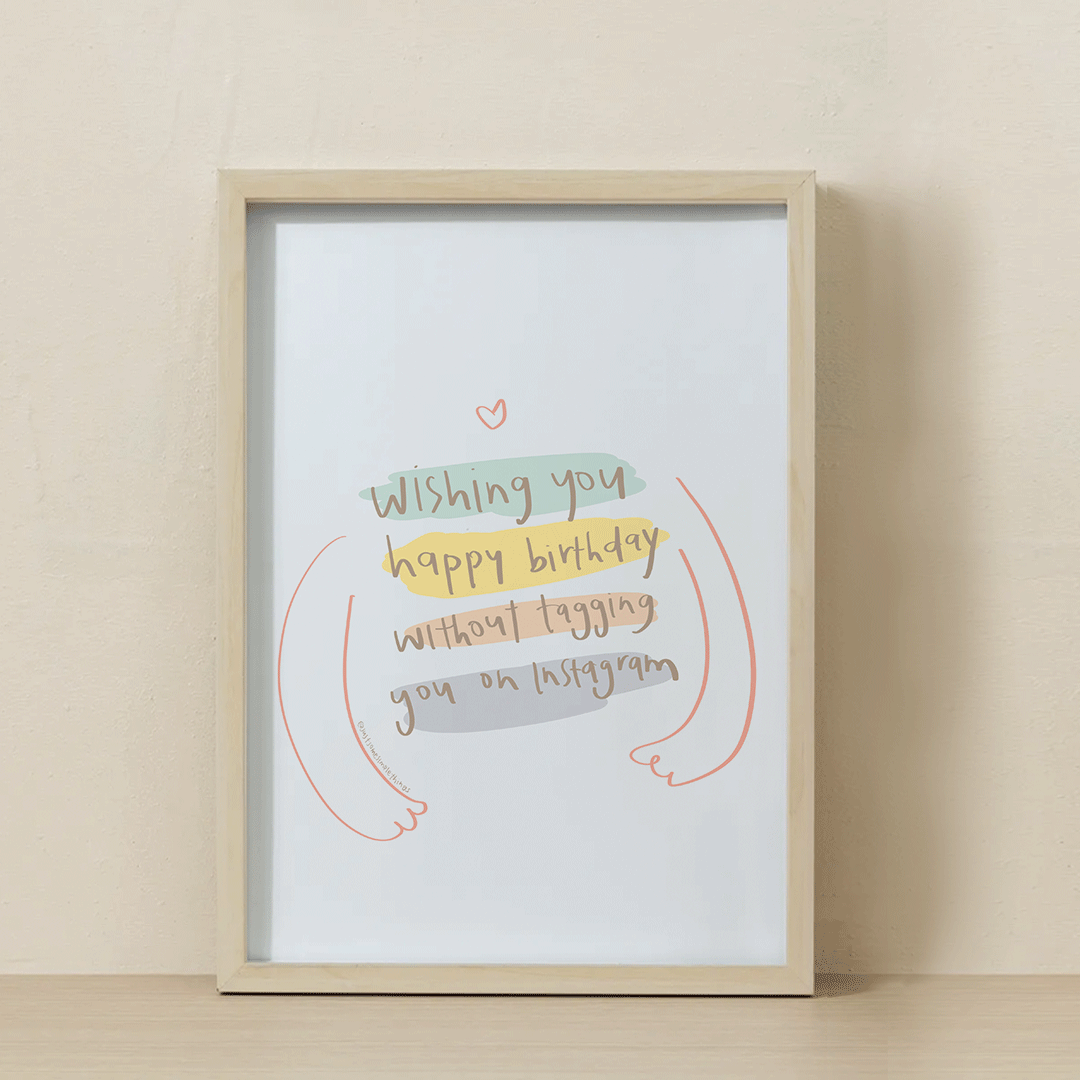 Wishing you
happy birthday
without tagging
you on Instagram
@justsomesimplethings